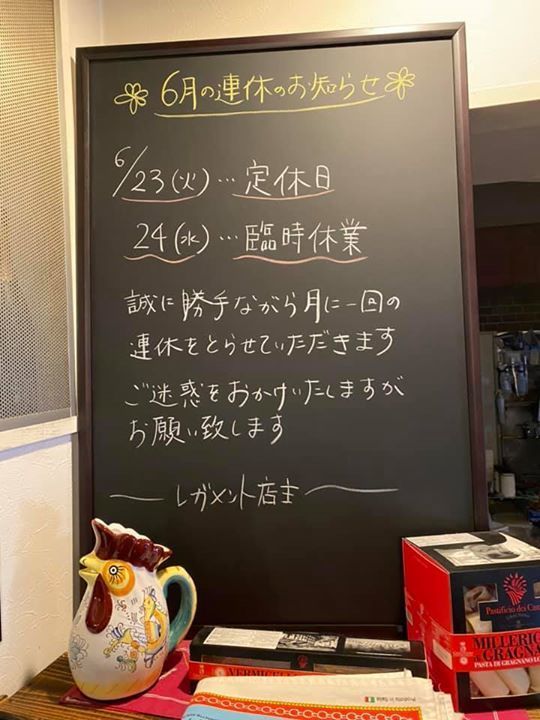 6月の連休のお知らせ
6/23(火)…定休日
24(水)…臨時休業
誠に勝手ながら月に一回の
連休をとらせていただきます
ご迷惑をおかけいたしますが
お願い致します
レガメント店主
Pastificio dei
MILLERIG
GRAGNA
PASTA DI GRAGNANO
VERMICEL
Prodotto in Italia